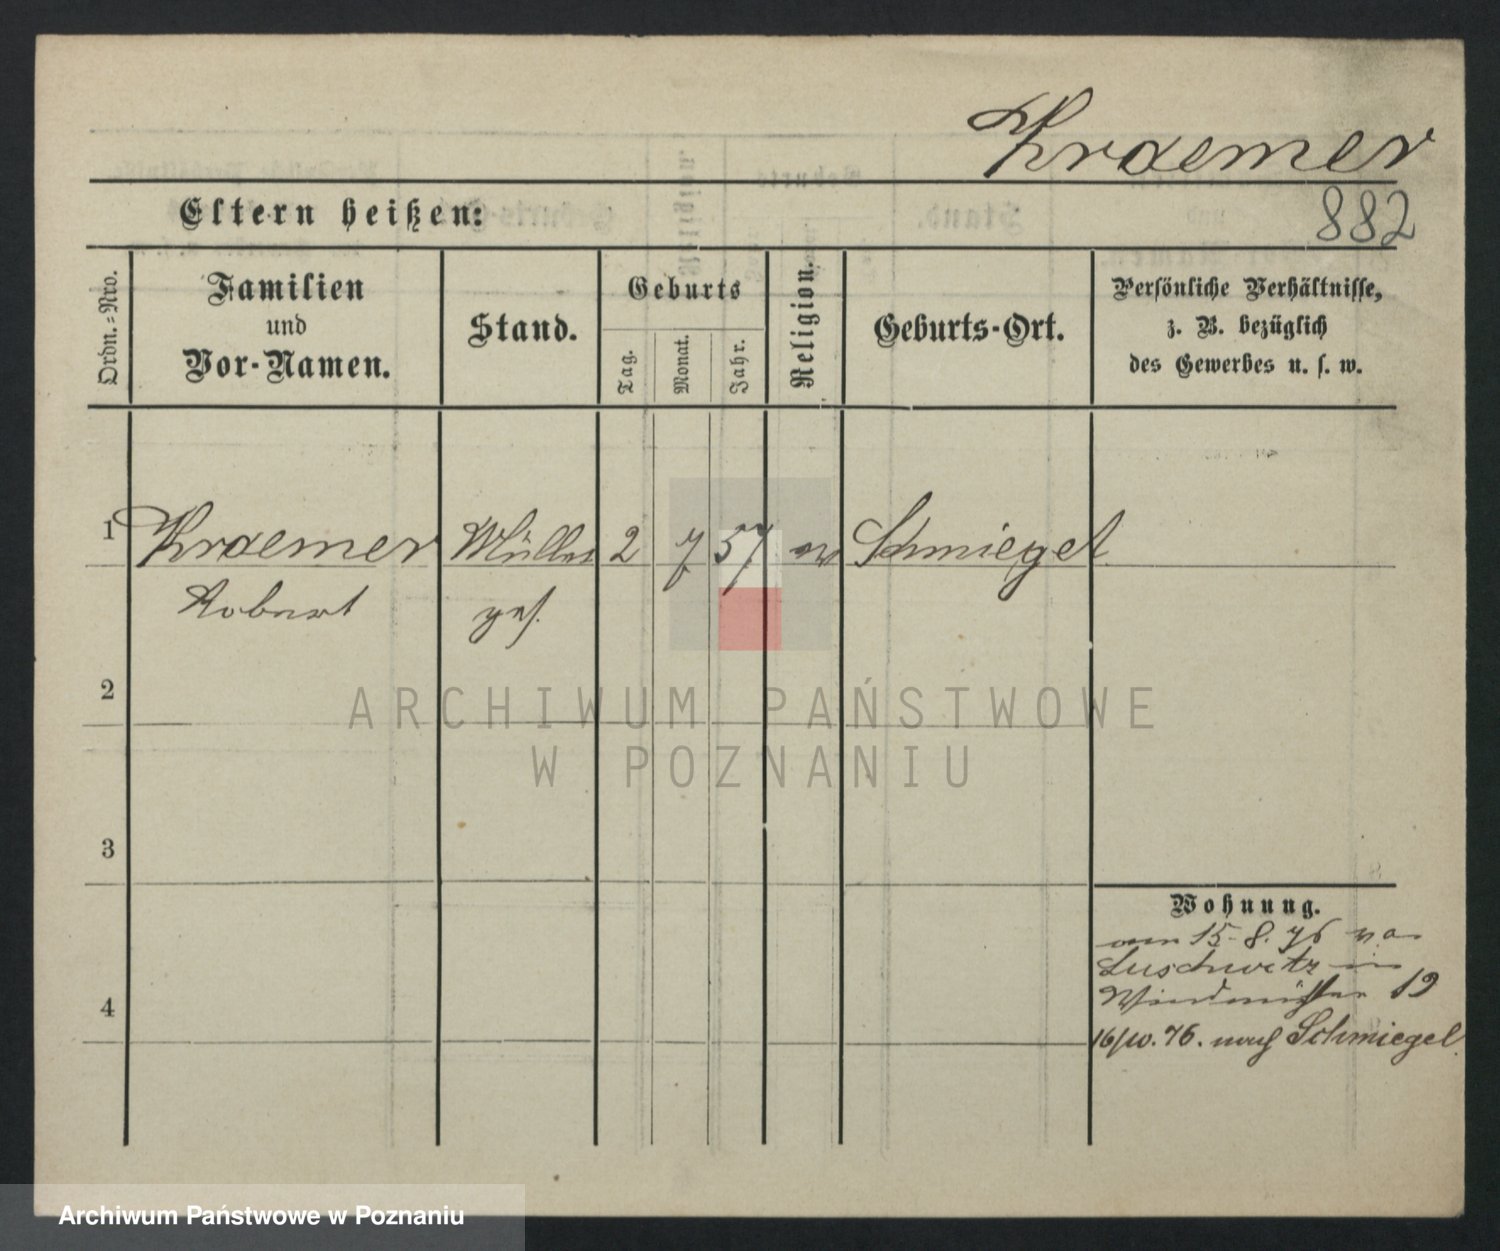 Kraemer
882
Eltern heißen:
Ordn.-Nro.
Familien
und
Vor-Namen.
Stand.
Geburts
Tag.
Monat.
Jahr.
Religion.
Geburts-Ort.
Persönliche Verhältnisse,
z. B. bezüglich
des Gewerbes u. s. w.
1 Kraemer Müller 2 7 57 ev Schmiegel
Robert ges.
2
3
4
Wohnung.
am 15.8.76 von
Luschwitz in
16/10.76. nach Schmiegel
ARCHIWUM PAŃSTWOWE
W POZNANIU
Archiwum Państwowe w Poznaniu